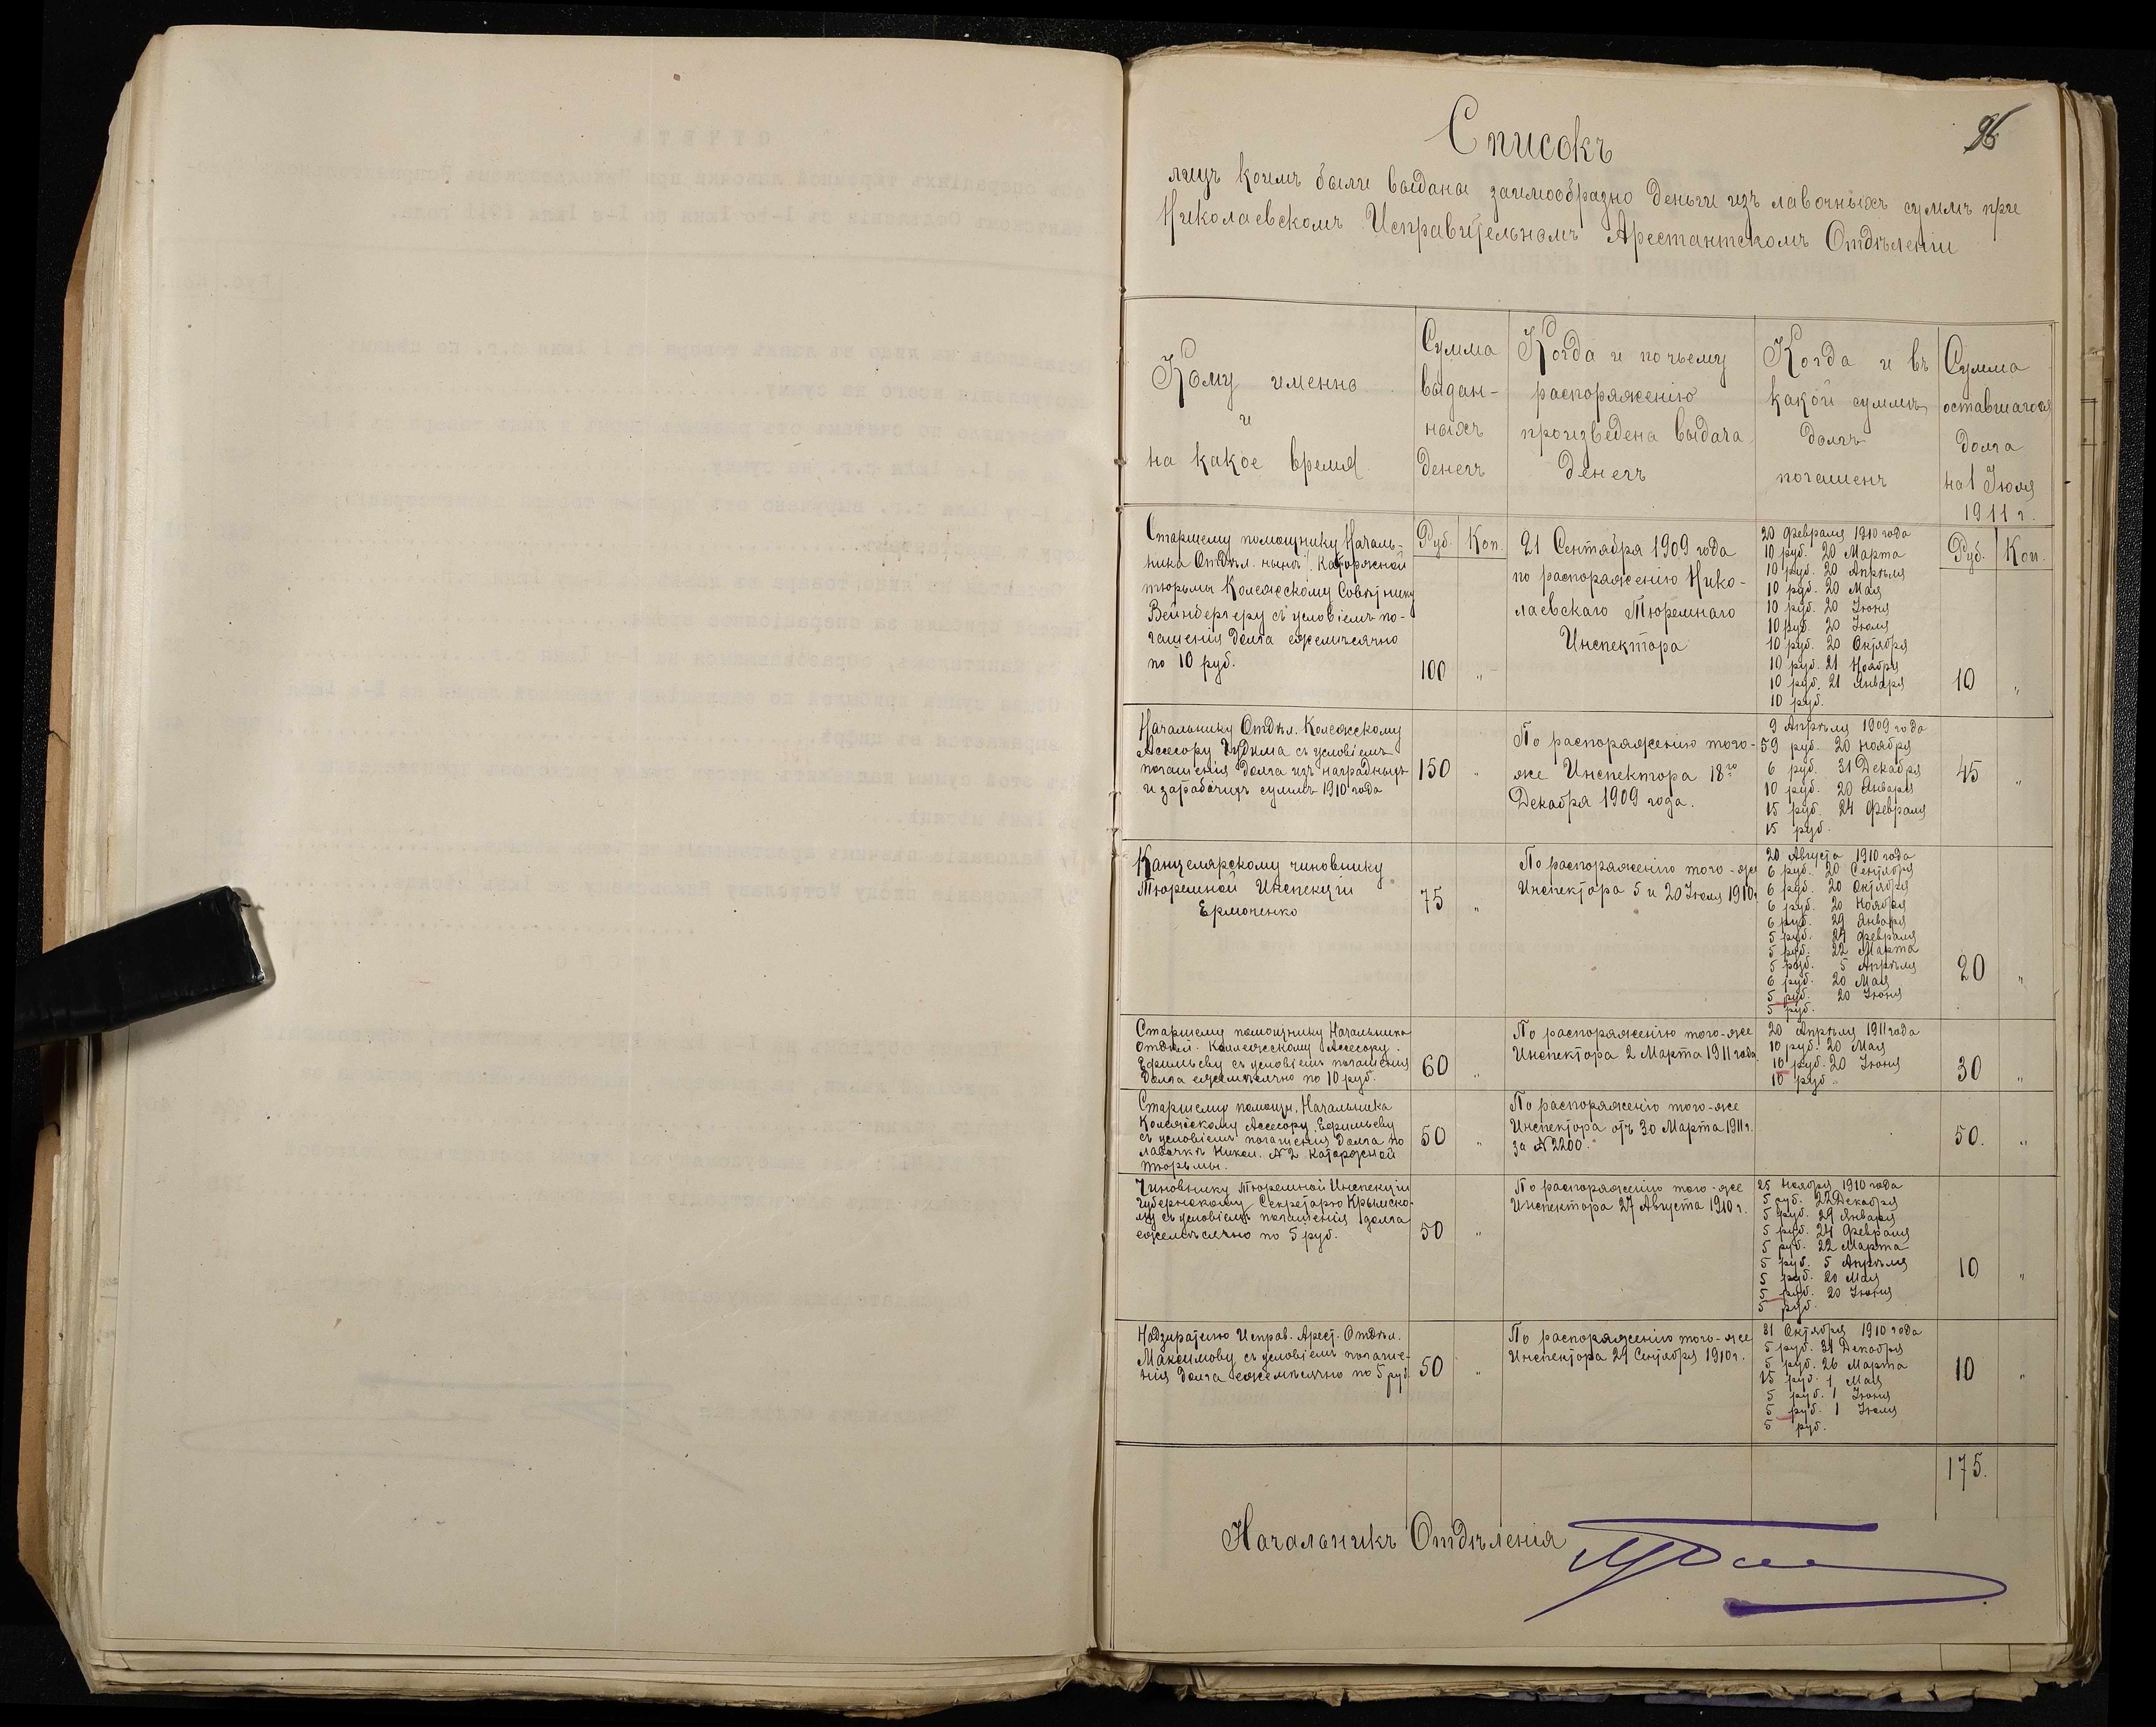 96
Списокъ
лицъ коимъ были выданы заимообразно деньги изъ лавочныхъ суммъ при
Николаевскомъ Исправительномъ Арестантскомъ Отдѣленіи
Кому именно
и
на какое время
Сумма
выдан-
ныхъ
денегъ
Когда и по чьему
распоряженію
произведена выдача
денегъ
Когда и въ
какой суммѣ
долгъ
погашенъ
Сумма
оставшагося
долга
на 1 Іюля
1911 г.
Руб. Коп.
Руб. Коп.
Старшему помощнику Началь-
ника Отдѣл. нынѣ Каторжной
тюрьмы Колежскому Совѣтнику
Вейнбергеру съ условіемъ по-
гашенія долга ежемѣсячно
по 10 руб.
100 "
21 Сентября 1909 года
по распоряженію Нико-
лаевскаго Тюремнаго
Инспектора
20 Февраля 1910 года
10 руб. 20 Марта
10 руб. 20 Апрѣля
10 руб. 20 Мая
10 руб. 20 Іюня
10 руб. 20 Іюля
10 руб. 20 Октября
10 руб. 21 Ноября
10 руб. 21 Января
10 руб.
10 "
Начальнику Отдѣл. Колежскому
Асесору съ условіемъ
погашенія долга изъ наградныхъ
и заработныхъ суммъ 1910 года
150 "
По распоряженію того-
же Инспектора 18го
Декабря 1909 года.
9 Апрѣля 1909 года
59 руб. 20 Ноября
6 руб. 31 Декабря
10 руб. 20 Января
15 руб. 24 Февраля
15 руб.
45 "
Канцелярскому чиновнику
Тюремной Инспекціи
Ермоченко
75 "
По распоряженію того-же
Инспектора 5 и 20 Іюля 1910 г.
20 Августа 1910 года
6 руб. 20 Сентября
6 руб. 20 Октября
6 руб. 20 Ноября
6 руб. 29 Января
5 руб. 24 Февраля
5 руб. 22 Марта
5 руб. 5 Апрѣля
6 руб. 20 Мая
5 руб. 20 Іюня
5 руб.
20 "
Старшему помощнику Начальника
Отдѣл. Коллежскому Асесору
Ефимьеву съ условіемъ погашенія
долга ежемѣсячно по 10 руб.
60 "
По распоряженію того-же
Инспектора 2 Марта 1911 года
20 Апрѣля 1911 года
10 руб. 20 Мая
10 руб. 20 Іюня
10 руб.
30 "
Старшему помощн. Начальника
Колежскому Асесору Ефимьеву
съ условіемъ погашенія долга по
лавочкѣ Никол. №2 Каторжной
тюрьмы.
50 "
По распоряженію того-же
Инспектора отъ 30 Марта 1911 г.
за №2200.
50. "
Чиновнику Тюремной Инспекціи
Губернскому Секретарю Крымско-
му съ условіемъ погашенія долга
ежемѣсячно по 5 руб.
50 "
По распоряженію того-же
Инспектора 27 Августа 1910 г.
25 Ноября 1910 года
5 руб. 22 Декабря
5 руб. 29 Января
5 руб. 24 Февраля
5 руб. 22 Марта
5 руб. 5 Апрѣля
5 руб. 20 Мая
5 руб. 20 Іюня
5 руб.
10 "
Надзирателю Исправ. Арест. Отдѣл.
Максимову съ условіемъ погаше-
нія долга ежемѣсячно по 5 руб.
50 "
По распоряженію того-же
Инспектора 29 Сентября 1910 г.
31 Октября 1910 года
5 руб. 31 Декабря
5 руб. 26 Марта
15 руб. 1 Мая
5 руб. 1 Іюня
5 руб. 1 Іюля
5 руб.
10 "
175.
Начальникъ Отдѣленія